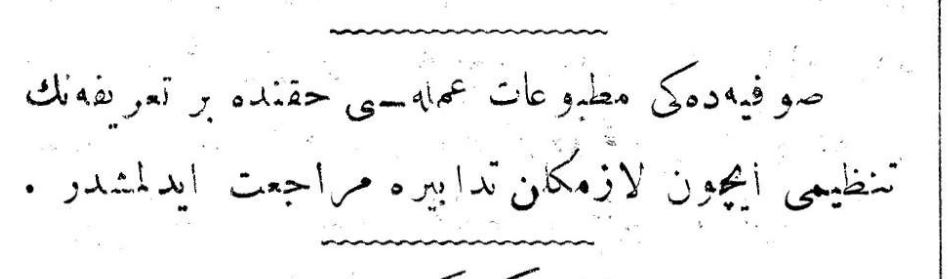 صوفیه‌ده‌کی مطبوعات عمله‌سی حقنده بر تعریفه‌نك
تنظیمی ایچون لازمکلن تدابیره مراجعت ایدلمشدر .